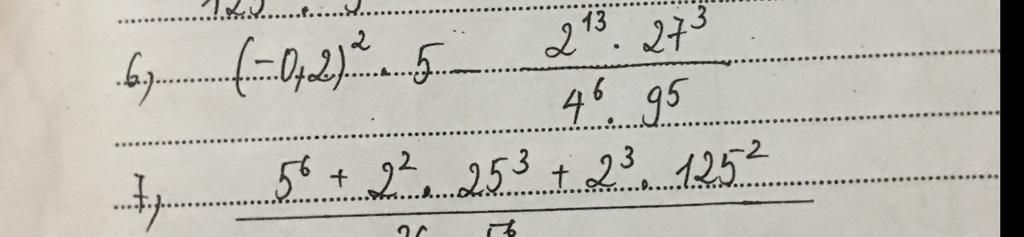 6, (-0,2)² . 5 - 2¹³ . 27³
4⁶ . 9⁵
7, 5⁶ + 2² . 25³ + 2³ . 125⁻²